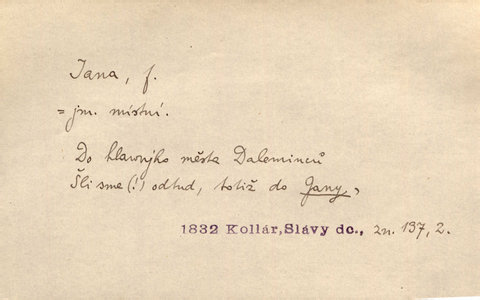 Jana, f.
= jm. místní.
Do hlawnjho města Daleminců
Šli sme (!) odtud, totiž do Gany,
1832 Kollár, Slávy dc., zn. 137, 2.